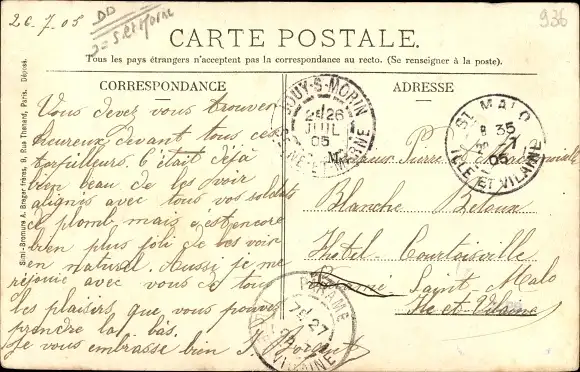 26-7-05
936
CARTE POSTALE.
Tous les pays étrangers n'acceptent pas la correspondance au recto. (Se renseigner à la poste).
CORRESPONDANCE
Vous devez vous trouver
heureux devant tous ces
torpilleurs. C'était déjà
bien beau de les voir
alignés avec tous vos soldats
de plomb mais c'est encore
bien plus joli de les voir
en naturel. Aussi je me
réjouie avec vous de tous
les plaisirs que vous pouvez
prendre la bas.
Je vous embrasse bien
ADRESSE
Pierre
Blanche Beloux
Hôtel Courtoisville
Paramé Saint-Malo
Ile et Vilaine
JOUY-S-MORIN
2E 26
JUIL
05
SEINE-ET-MARNE
ST MALO
8 35
7
05
ILLE ET VILAINE
PARAME
7E 27
05
ILLE ET VILAINE
Simi-Bromure A. Breger frères, 9, Rue Thénard, Paris. Déposé.